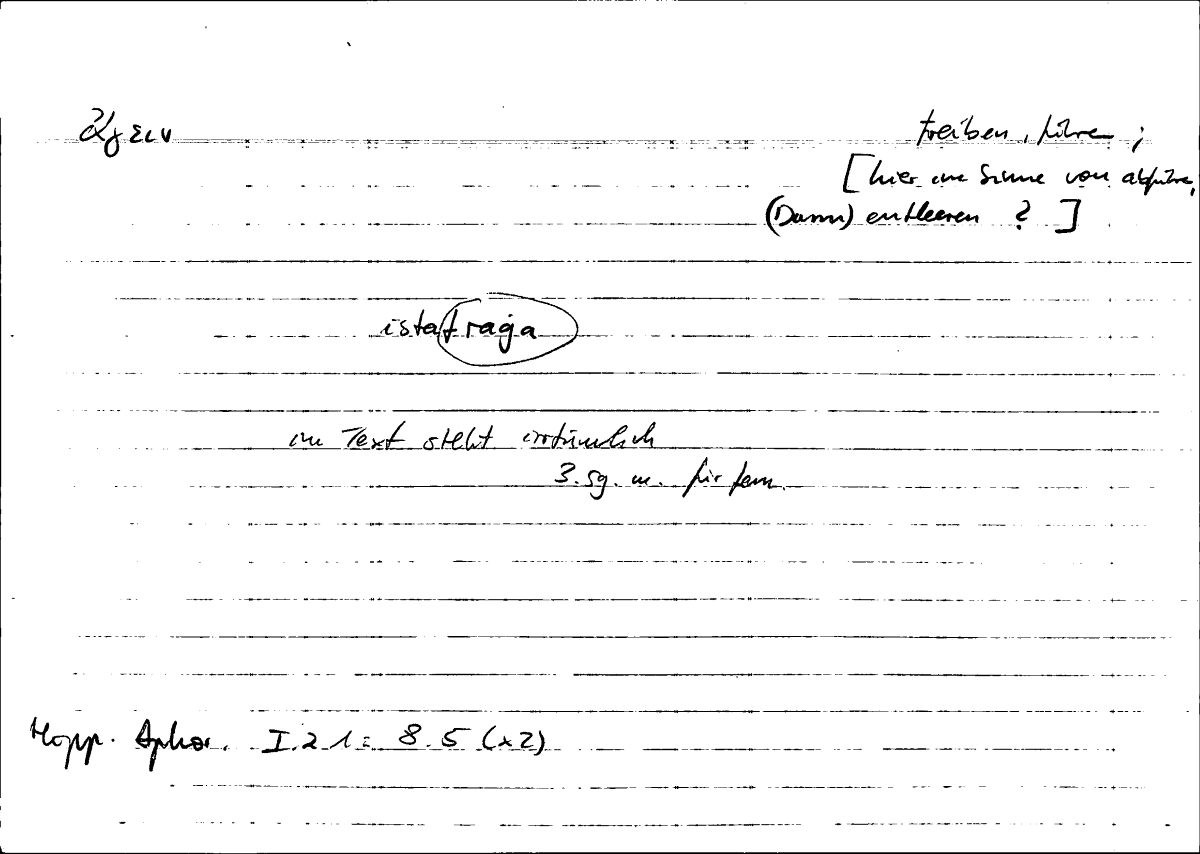 ἄγειν treiben, führen;
[hier im Sinne von abführen,
(Darm) entleeren ? ]
istafraġa
im Text steht irrtümlich
3. sg. m. für fem.
Hipp. Aphor. I.21 = 8.5 (x2)